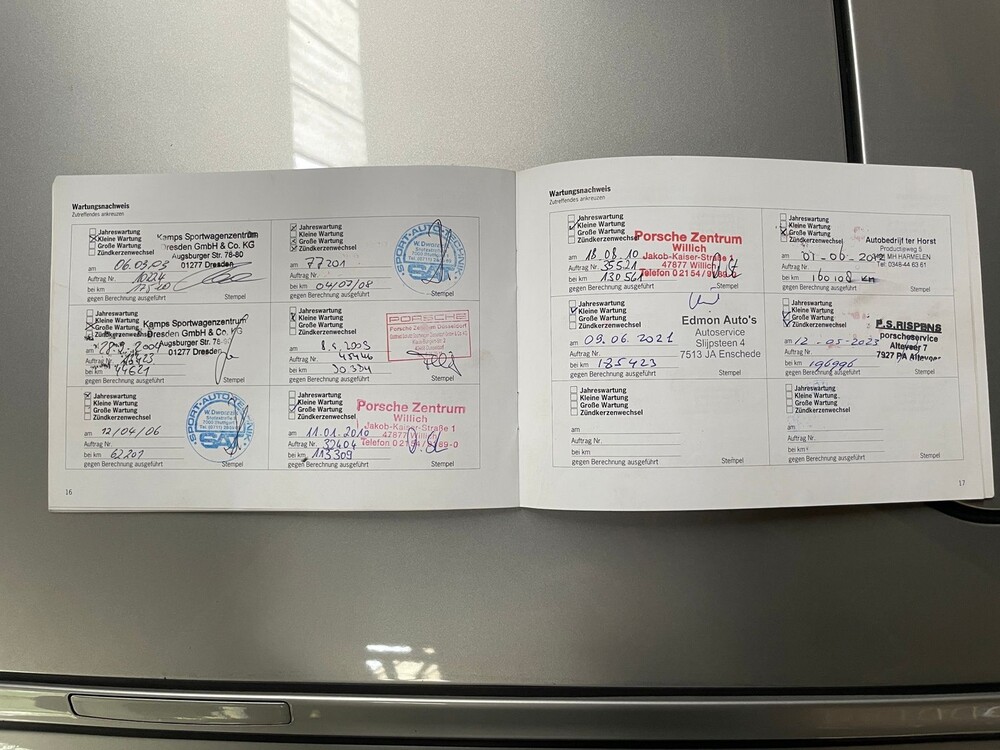 Wartungsnachweis
Zutreffendes ankreuzen
Jahreswartung
Kleine Wartung
Große Wartung
Zündkerzenwechsel
Kamps Sportwagenzentrum
Dresden GmbH & Co. KG
Augsburger Str. 76-80
01277 Dresden
am 06.03.03
Auftrag Nr.
bei km
gegen Berechnung ausgeführt
Stempel
Jahreswartung
Kleine Wartung
Große Wartung
Zündkerzenwechsel
SPORT-AUTO
SAT
am 77201
Auftrag Nr.
bei km 04/02/08
gegen Berechnung ausgeführt
Stempel
Jahreswartung
Kleine Wartung
Große Wartung
Kamps Sportwagenzentrum
Dresden GmbH & Co. KG
Augsburger Str. 76-80
01277 Dresden
Auftrag Nr.
bei km 44621
gegen Berechnung ausgeführt
Stempel
Jahreswartung
Kleine Wartung
Große Wartung
Zündkerzenwechsel
PORSCHE
Porsche Zentrum Düsseldorf
am
Auftrag Nr.
bei km
gegen Berechnung ausgeführt
Stempel
Jahreswartung
Kleine Wartung
Große Wartung
Zündkerzenwechsel
SPORT-AUTO
SAT
am 12/04/06
Auftrag Nr.
bei km 62201
gegen Berechnung ausgeführt
Stempel
Jahreswartung
Kleine Wartung
Große Wartung
Zündkerzenwechsel
Porsche Zentrum
Willich
Jakob-Kaiser-Straße 1
47877 Willich
Telefon 0 21 54 / 9189-0
am 11.01.2010
Auftrag Nr. 32404
bei km 113309
gegen Berechnung ausgeführt
Stempel
16
Wartungsnachweis
Zutreffendes ankreuzen
Jahreswartung
Kleine Wartung
Große Wartung
Zündkerzenwechsel
Porsche Zentrum
Willich
Jakob-Kaiser-Straße 1
47877 Willich
Telefon 0 21 54 /
am 18.08.10
Auftrag Nr. 35521
bei km 130.561
gegen Berechnung ausgeführt
Stempel
Jahreswartung
Kleine Wartung
Große Wartung
Zündkerzenwechsel
Autobedrijf ter Horst
Productieweg 5
MH HARMELEN
Tel: 0348-44 63 61
am 01-06-2012
Auftrag Nr.
bei km 160108 km
gegen Berechnung ausgeführt
Stempel
Jahreswartung
Kleine Wartung
Große Wartung
Zündkerzenwechsel
Edmon Auto's
Autoservice
Slijpsteen 4
7513 JA Enschede
am 09.06.2021
Auftrag Nr.
bei km 185423
gegen Berechnung ausgeführt
Stempel
Jahreswartung
Kleine Wartung
Große Wartung
Zündkerzenwechsel
P.S.RISPENS
porscheservice
Alteveer 7
7927 PA Alteveer
am 12-05-2023
Auftrag Nr.
bei km 196996
gegen Berechnung ausgeführt
Stempel
Jahreswartung
Kleine Wartung
Große Wartung
Zündkerzenwechsel
am
Auftrag Nr.
bei km
gegen Berechnung ausgeführt
Stempel
Jahreswartung
Kleine Wartung
Große Wartung
Zündkerzenwechsel
am
Auftrag Nr.
bei km
gegen Berechnung ausgeführt
Stempel
17